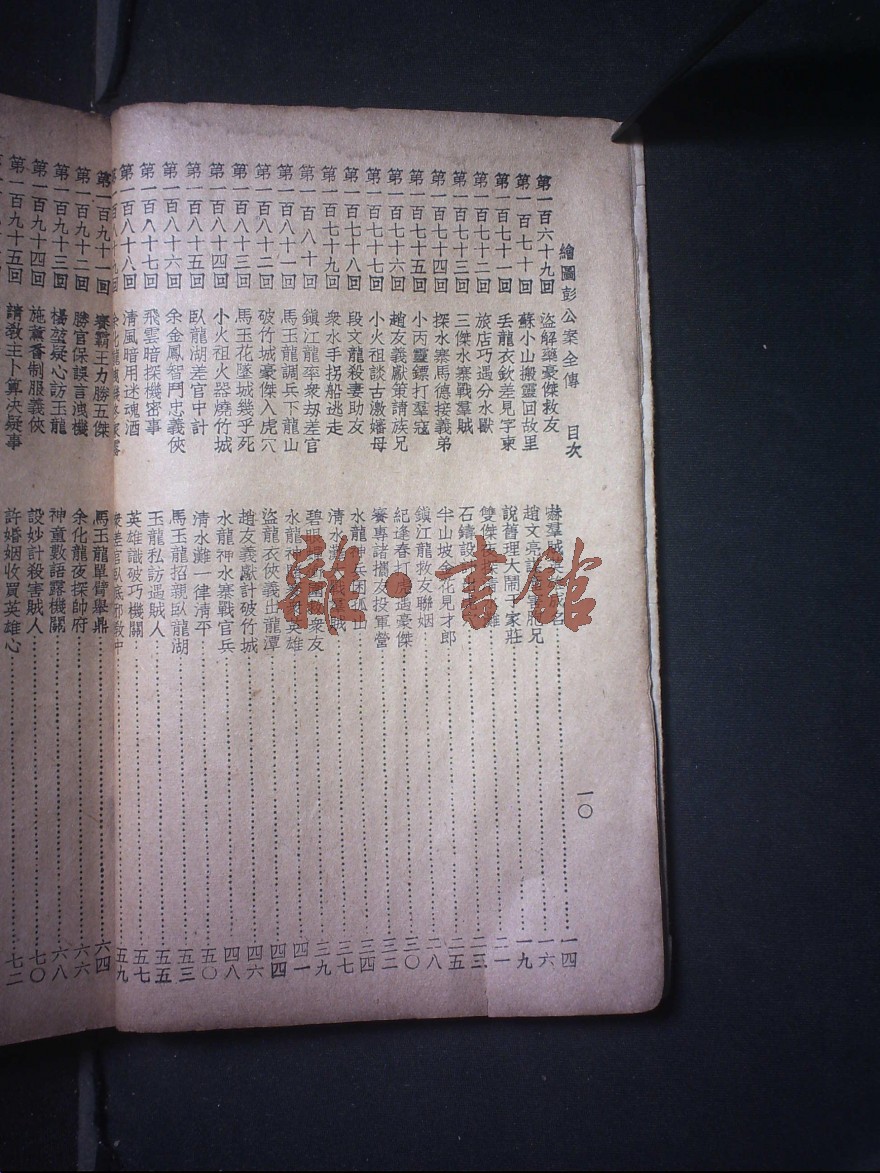 繪圖彭公案全傳 目次 一〇
第一百六十九回 盜解藥豪傑救友 赫羣賊 名 一四
第一百七十回 蘇小山搬靈回故里 趙文亮 害胞兄 一六
第一百七十一回 丢龍衣欽差見字柬 說舊理大鬧于家莊 一九
第一百七十二回 旅店巧遇分水獸 雙傑 二一
第一百七十三回 三傑水寨戰羣賊 石鑄設 二三
第一百七十四回 探水寨馬德接義弟 半山坡金花見才郎 二五
第一百七十五回 小丙靈鏢打羣寇 鎭江龍救友聯姻 二八
第一百七十六回 趙友義獻策請族兄 紀逢春打虎遇豪傑 三〇
第一百七十七回 小火祖談古激嬸母 賽專諸攜友投軍營 三二
第一百七十八回 段文龍殺妻助友 水龍神兵困孤山 三四
第一百七十九回 衆水手拐船逃走 清水灘 羣賊 三七
第一百八十回 鎭江龍率衆刼差官 碧眼 救衆友 三九
第一百八十一回 馬玉龍調兵下龍山 水龍神 英雄 四一
第一百八十二回 破竹城豪傑入虎穴 盜龍衣俠義出龍潭 四四
第一百八十三回 馬玉花墜城幾乎死 趙友義獻計破竹城 四六
第一百八十四回 小火祖火器燒竹城 水龍神水寨戰官兵 四八
第一百八十五回 臥龍湖差官中計 清水灘一律淸平 五〇
第一百八十六回 余金鳳智鬥忠義俠 馬玉龍招親臥龍湖 五三
第一百八十七回 飛雲暗探機密事 玉龍私訪遇賊人 五五
第一百八十八回 清風暗用迷魂酒 英雄識破巧機關 五七
百八十九回 余化龍 衆差官臥底邪敎中 五九
第一百九十一回 賽霸王力勝五傑 馬玉龍單臂舉鼎 六四
第一百九十二回 勝官保誤言洩機 余化龍夜探帥府 六六
第一百九十三回 楊堃疑心訪玉龍 神童數語露機關 六八
第一百九十四回 施薰香制服義俠 設妙計殺害賊人 七〇
第一百九十五回 請敎主卜算決疑事 許婚姻收買英雄心 七二
雜·書館